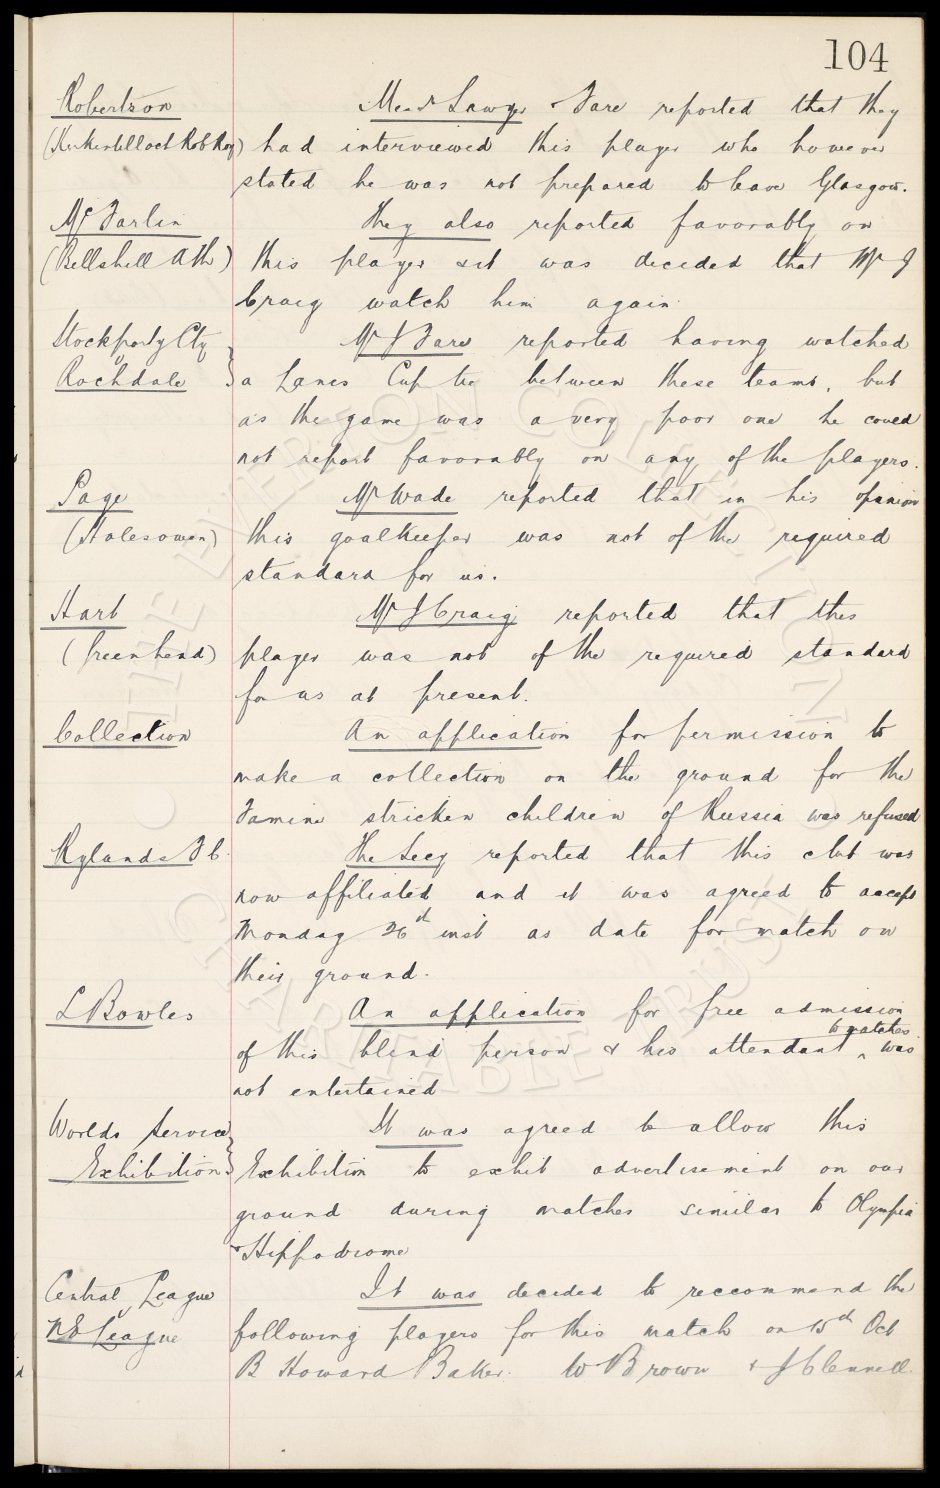 104
Robertson Messrs Sawyer & Fare reported that they
(Kirkintilloch Rob Roy) had interviewed this player who however
stated he was not prepared to leave Glasgow.
McFarlin They also reported favorably on
(Bellshill Ath) this player & it was decided that Mr J
Craig watch him again.
Stockport Cty Mr J Fare reported having watched
v Rochdale a Lancs Cup tie between these teams, but
as the game was a very poor one he could
not report favorably on any of the players.
Page Mr Wade reported that in his opinion
(Halesowen) this goalkeeper was not of the required
standard for us.
Hart Mr J Craig reported that this
(Greenhead) player was not of the required standard
for us at present.
Collection An application for permission to
make a collection on the ground for the
Famine stricken children of Russia was refused
Rylands F C. The Secy reported that this club was
now affiliated and it was agreed to accept
Monday 26th inst as date for match on
their ground.
L Bowles An application for free admission
of this blind person & his attendant to matches was
not entertained
Worlds Service It was agreed to allow this
Exhibition Exhibition to exhit advertisement on our
ground during matches similar to Olympia
& Hippodrome
Central League It was decided to reccommend the
v N E League following players for this match on 15th Oct
B Howard Baker. W Brown & J Clennell.
THE EVERTON COLLECTION
CHARITABLE TRUST